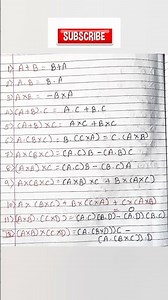 SUBSCRIBE
1) A+B = B+A
2) A.B = B.A
3) A×B = -B×A
4) (A+B).C = A.C + B.C
5) (A+B)×C = A×C + B×C
6) A.(B×C) = B.(C×A) = C.(A×B)
7) A×(B×C) = (A.C)B - (A.B)C
8) (A×B)×C = (A.C)B - (B.C)A
9) A×(B×C) = (A×B)×C + B×(A×C)
10) A×(B×C) + B×(C×A) + C×(A×B) = 0
11) (A×B).(C×D) = (A.C)(B.D) - (A.D)(B.C)
12) (A×B)×(C×D) = (A.(B×D))C -
(A.(B×C)).D